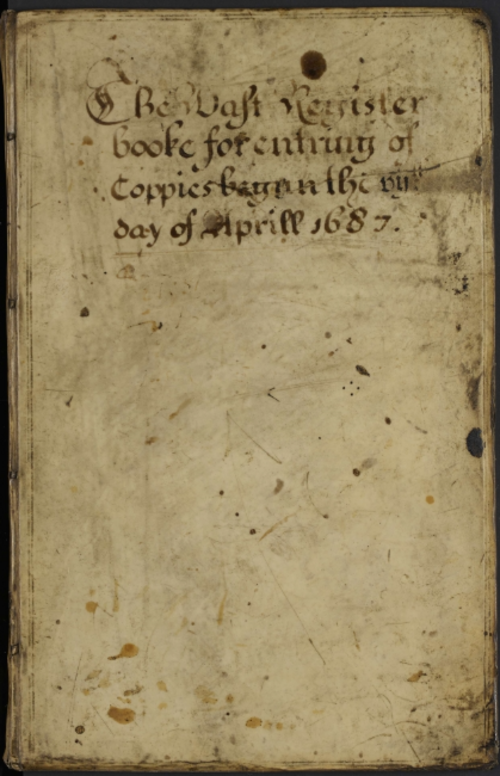 The Wast Register
booke for entring of
Coppies begun the vijth
day of Aprill 1687.